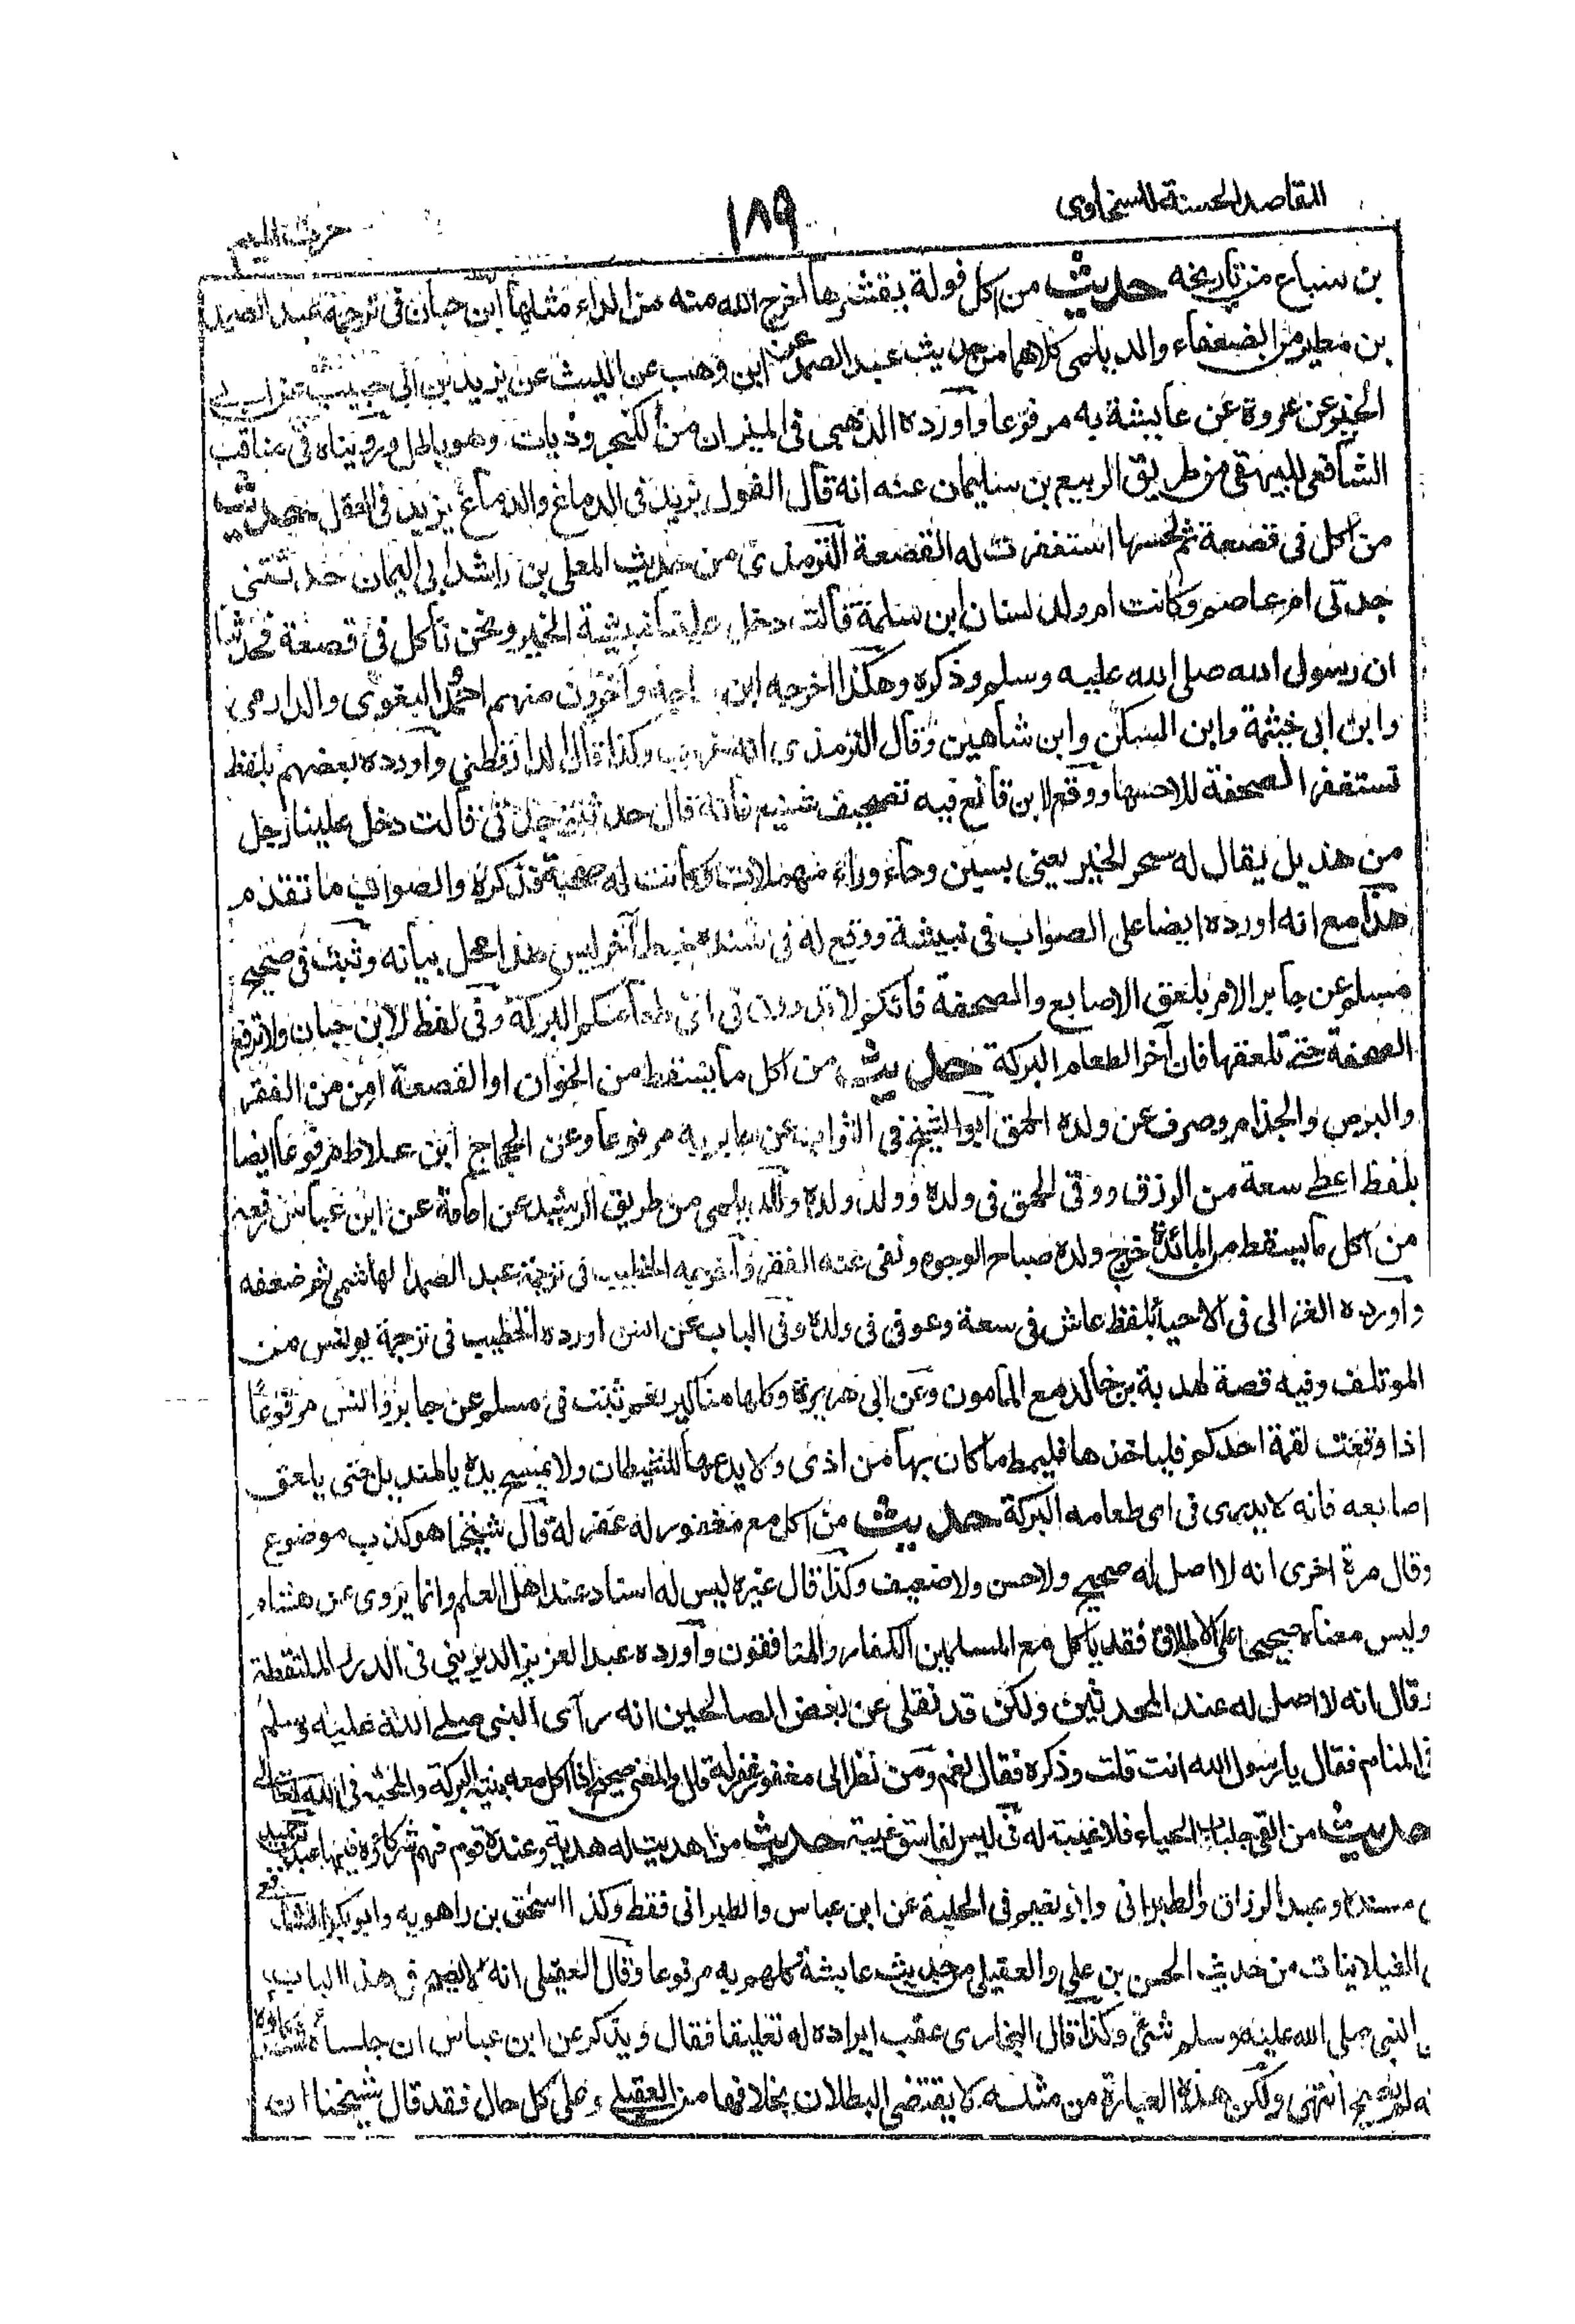 المقاصد الحسنة للسخاوى
١٨٩
حرف الميم
بن سباع من تاريخه حديث من اكل فولة بقشرها اخرج الله منه من الداء مثلها ابن حبان فى ترجمة عبد الصمد
بن مطير من الضعفاء والديلمى كلاهما من حديث عبد الصمد عن ابن وهب عن الليث عن يزيد بن ابى حبيب عن ابى
الخير عن عروة عن عايشة به مرفوعا واورده الذهبى فى الميزان من وهو باطل ورويناه فى مناقب
الشافعى للبيهقى من طريق الربيع بن سليمان عنه انه قال الفول يزيد فى الدماغ والدماغ يزيد فى العقل حديث
من اكل فى قصعة ثم لحسها استغفرت له القصعة الترمذى من حديث المعلى بن راشد ابى اليمان حدثتنى
جدتى ام عاصم وكانت ام ولد لسنان ابن سلمة قالت دخل علينا نبيشة الخير ونحن نأكل فى قصعة فحدثنا
ان رسول الله صلى الله عليه وسلم وذكره وهكذا اخرجه ابن ماجه وآخرون منهم احمد والبغوى والدارمى
وابن ابى خيثمة وابن السكن وابن شاهين وقال الترمذى انه غريب وكذا قال الدارقطنى واورده بعضهم بلفظ
تستغفر الصحفة للاحسها ووقع لابن قانع فيه تصحيف شنيع فانه قال حدثتنى جدتى قالت دخل علينا رجل
من هذيل يقال له سحر الخير يعنى بسين وحاء وراء مهملات كانت له صحبة فذكره والصواب ما تقدم
هذا مع انه اورده ايضا على الصواب فى نبيشة ووقع له فى سنده خبط آخر ليس هذا محل بيانه وثبت فى صحيح
مسلم عن جابر الامر بلعق الاصابع والصحفة فانكم لا تدرون فى اى طعامكم البركة وفى لفظ لابن حبان ولا ترفع
الصحفة حتى تلعقها فان آخر الطعام البركة حديث من اكل ما يسقط من الخوان او القصعة امن من الفقر
والبرص والجذام وصرف عن ولده الحمق ابو الشيخ فى الثواب عن جابر به مرفوعا وعن الحجاج ابن علاط مرفوعا ايضا
بلفظ اعطى سعة من الرزق ووقى الحمق فى ولده وولد ولده والديلمى من طريق الرشيد عن ابن عباس رفعه
من اكل ما يسقط من المائدة خرج ولده صباح الوجوه ونفى عنه الفقر واخرجه الخطيب فى ترجمة عبد الصمد الهاشمى ثم ضعفه
واورده الغزالى فى الاحياء بلفظ عاش فى سعة وعوفى فى ولده وفى الباب عن انس اورده الخطيب فى ترجمة يونس من
الموتلف وفيه قصة لهدبة بن خالد مع المامون وعن ابى هريرة وكلها مناكير نعم ثبت فى مسلم عن جابر وانس مرفوعا
اذا وقعت لقمة احدكم فليأخذها فليمط ما كان بها من اذى ولا يدعها للشيطان ولا يمسح يده بالمنديل حتى يلعق
اصابعه فانه لا يدرى فى اى طعامه البركة حديث من اكل مع مغفور له غفر له قال شيخنا هو كذب موضوع
وقال مرة اخرى انه لا اصل له صحيح ولا حسن ولا ضعيف وكذا قال غيره ليس له اسناد عند اهل العلم وانما يروى عن هشام
وليس معناه صحيحا على الاطلاق فقد يأكل مع المسلمين الكفار والمنافقون واورده عبد العزيز الديرينى فى الدرر الملتقطة
وقال انه لا اصل له عند المحدثين ولكن قد نقل عن بعض الصالحين انه رآى النبى صلى الله عليه وسلم
فى المنام فقال يا رسول الله انت قلت وذكره فقال نعم ومن نظر الى مغفور غفر له قال والمعنى صحيح اذا اكل معه بنية البركة والمحبة فى الله تعالى
حديث من القى جلباب الحياء فلا غيبة له فى ليس لفاسق غيبة حديث من اهديت له هدية وعنده قوم فهم شركاؤه فيها عبد بن حميد
فى مسنده وعبد الرزاق والطبرانى وابو نعيم فى الحلية عن ابن عباس والطبرانى فقط وكذا اسحق بن راهويه وابو بكر الشافعى
فى الغيلانيات من حديث الحسن بن على والعقيلى من حديث عايشة كلهم به مرفوعا وقال العقيلى انه لا يصح فى هذا الباب
عن النبى صلى الله عليه وسلم شئ وكذا قال البخارى عقب ايراده له تعليقا فقال ويذكر عن ابن عباس ان جلساءه شركاؤه
انه لم يصح انتهى ولكن هذه العبارة من مثله لا يقتضى البطلان بخلافها من العقيلى وعلى كل حال فقد قال شيخنا ان